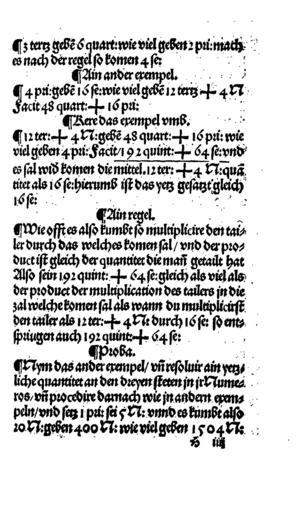 ¶3 tertz gebẽ 6 quart: wie viel geben 2 pri: mach
es nach der regel so komen 4 se:
¶Ain ander exempel.
¶4 pri: gebẽ 16 se: wie viel gebẽ 12 tertz + 4 N
Facit 48 quart: + 16 pri:
¶Kere das exempel vmb.
¶12 ter: + 4 N: gebẽ 48 quart: + 16 pri: wie
viel geben 4 pri: Facit/192 quint: + 64 se: vnd
es sal wid komen die mittel. 12 ter: + 4 N: quã
titet als 16 se: hierumb ist das yetz gesatzt gleich
16 se:
¶Ain regel.
¶Wie offt es also kumbt so multiplicire den tai-
ler durch das welches komen sal/ vnd der pro-
duct ist gleich der quantitet die mañ getailt hat
Also sein 192 quint: + 64 se: gleich als viel als
der product der multiplication des tailers in die
zal welche komen sal als wann du multiplicirst
den tailer als 12 ter: + 4 N: durch 16 se: so ent-
spriugen auch 192 quint: + 64 se:
¶Proba.
¶Nym das ander exempel/ vñ resoluir ain yetz-
liche quantitet an den dreyen steten in jr Nume-
ros/ vñ procedire darnach wie in andern exem-
peln/ vnd setz 1 pri: sei 5 N: vnnd es kumbt also
20 N: geben 400 N: wie viel geben 1504 N:
h iiij